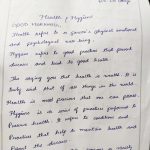 Health & Hygiene
GOOD MORNING,
Health refers to a person's physical emotional
and psychological well being
Hygiene refers to good practice that prevent
disease and lead to good health
The saying goes that health is wealth. It is
truly and that of all things in the world.
Health is most precious that we can please
Hygiene is a set of practices performed to
Preserve health. It refers to conditions and
Practices that help to maintain health and
Prevent the